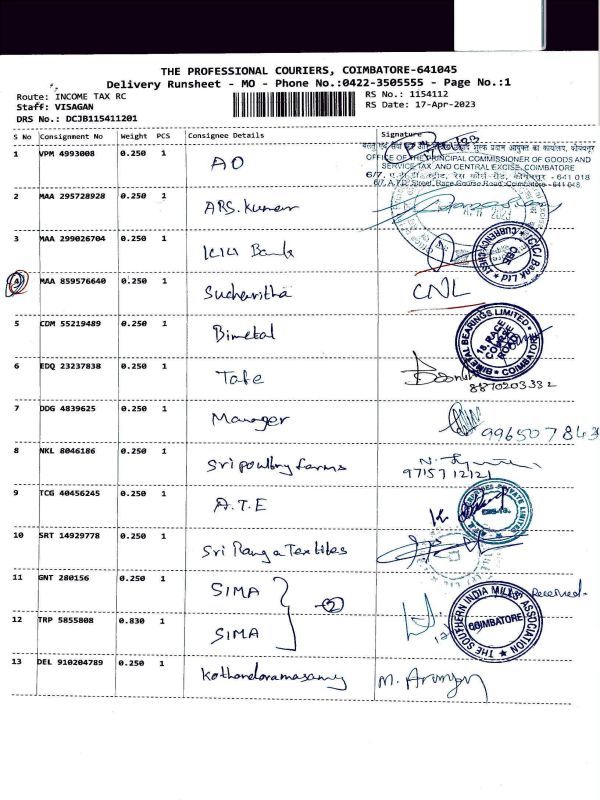 THE PROFESSIONAL COURIERS, COIMBATORE-641045
Delivery Runsheet - MO - Phone No.:0422-3505555 - Page No.:1
Route: INCOME TAX RC
RS No.: 1154112
Staff: VISAGAN
RS Date: 17-Apr-2023
DRS No.: DCJB115411201
S No Consignment No Weight PCS Consignee Details Signature
1 VPM 4993008 0.250 1 AO
OFFICE OF THE PRINCIPAL COMMISSIONER OF GOODS AND
SERVICE TAX AND CENTRAL EXCISE, COIMBATORE
6/7, ए.टी.डी. स्ट्रीट, रेस कोर्स रोड, कोयंबत्तूर - 641 018
6/7, A.T.D. Street, Race Course Road, Coimbatore - 641 018
2 MAA 295728928 0.250 1 ARS. Kumar
2023
3 MAA 299026704 0.250 1 ICICI Bank
ICICI Bank Ltd
CURRENCY CHEST
CBS
4 MAA 859576640 0.250 1 Sucharitha CNL
5 CDM 55219489 0.250 1 Bimetal
BIMETAL BEARINGS LIMITED
18, RACE COURSE ROAD
COIMBATORE
6 EDQ 23237838 0.250 1 Tafe
8870203332
7 DDG 4839625 0.250 1 Manager
9965078439
8 NKL 8046186 0.250 1 Sri poultry farms
9715712121
9 TCG 40456245 0.250 1 A.T.E
PRIVATE LIMITED
10 SRT 14929778 0.250 1 Sri Ranga Textiles
11 GNT 280156 0.250 1 SIMA
2
Received
12 TRP 5855808 0.830 1 SIMA
THE SOUTHERN INDIA MILLS' ASSOCIATION
COIMBATORE
13 DEL 910204789 0.250 1 Kothandaramasamy